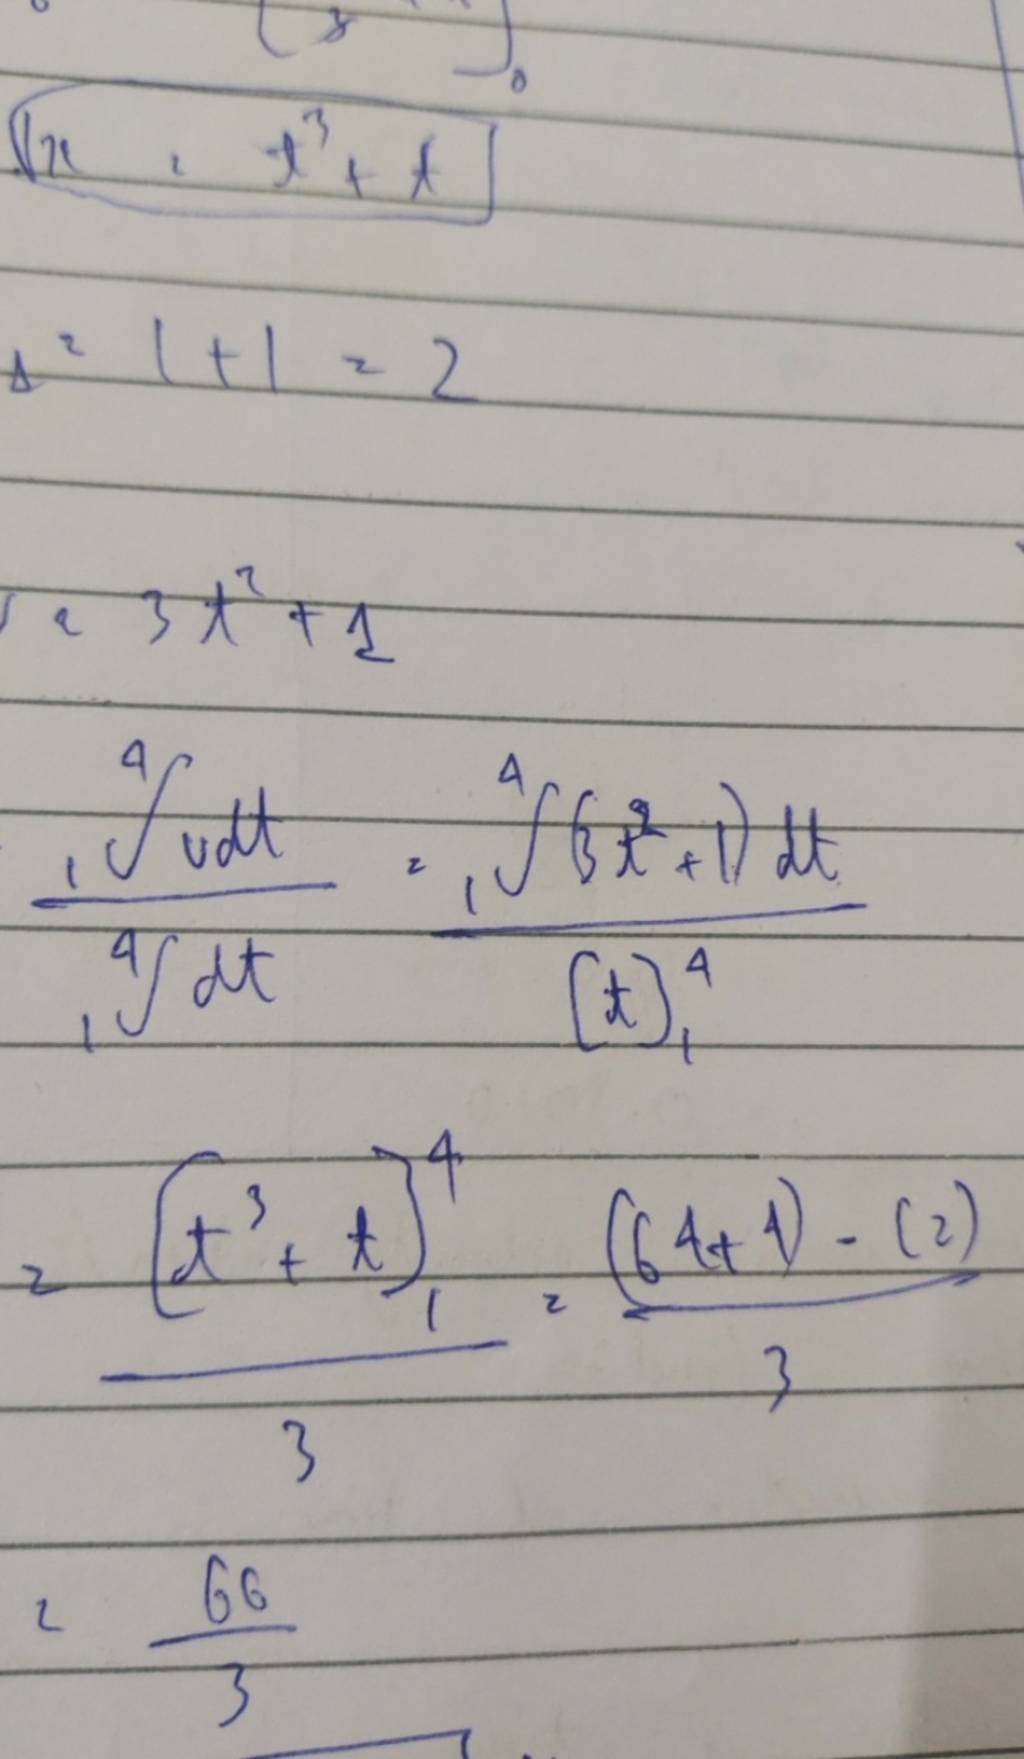 x = t³ + t
s = 1 + 1 = 2
v = 3t² + 1
₁∫⁴ v dt / ₁∫⁴ dt = ₁∫⁴ (3t² + 1) dt / [t]₁⁴
= [t³ + t]₁⁴ / 3 = (64 + 4) - (2) / 3
= 66 / 3